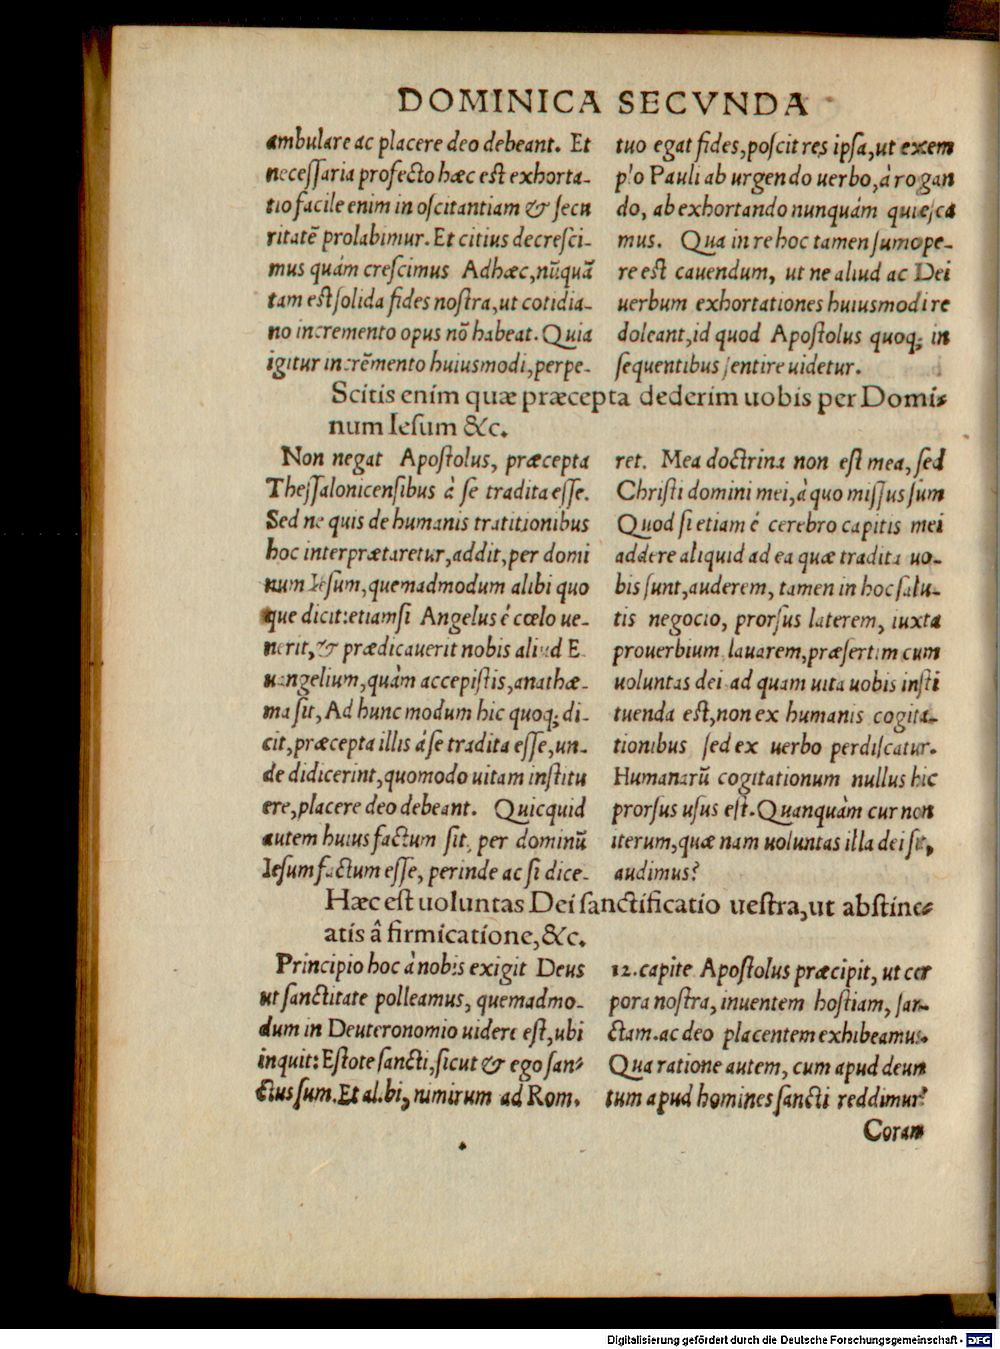 DOMINICA SECVNDA
ambulare ac placere deo debeant. Et
necessaria profecto hæc est exhorta-
tio facile enim in oscitantiam & secu
ritatē prolabimur. Et citius decresci-
mus quám crescimus Adhæc, nūquā
tam est solida fides nostra, ut cotidia-
no incremento opus nō habeat. Quia
igitur incrēmento huiusmodi, perpe-
tuo egat fides, poscit res ipsa, ut exem
plo Pauli ab urgendo uerbo, à rogan
do, ab exhortando nunquám quiesca
mus. Qua in re hoc tamen sumope-
re est cauendum, ut ne aliud ac Dei
uerbum exhortationes huiusmodi re
doleant, id quod Apostolus quoq; in
sequentibus sentire uidetur.
Scitis enim quæ præcepta dederim uobis per Domi-
num Iesum &c.
Non negat Apostolus, præcepta
Thessalonicensibus à se tradita esse.
Sed ne quis de humanis tratitionibus
hoc interprætaretur, addit, per domi
num Iesum, quemadmodum alibi quo
que dicit: etiamsi Angelus é cœlo ue-
nerit, & prædicauerit nobis aliud E
uangelium, quàm accepistis, anathæ-
ma sit, Ad hunc modum hic quoq; di-
cit, præcepta illis á se tradita esse, un-
de didicerint, quomodo uitam institu
ere, placere deo debeant. Quicquid
autem huius factum sit, per dominū
Iesum factum esse, perinde ac si dice-
ret. Mea doctrina non est mea, sed
Christi domini mei, à quo missus sum
Quod si etiam é cerebro capitis mei
addere aliquid ad ea quæ tradita uo-
bis sunt, auderem, tamen in hoc salu-
tis negocio, prorsus laterem, iuxta
prouerbium lauarem, præsertim cum
uoluntas dei ad quam uita uobis insti
tuenda est, non ex humanis cogita-
tionibus sed ex uerbo perdiscatur.
Humanarū cogitationum nullus hic
prorsus usus est. Quanquàm cur non
iterum, quæ nam uoluntas illa dei sit,
audimus?
Hæc est uoluntas Dei sanctificatio uestra, ut abstine-
atis â firmicatione, &c.
Principio hoc à nobis exigit Deus
ut sanctitate polleamus, quemadmo-
dum in Deuteronomio uidere est, ubi
inquit: Estote sancti, sicut & ego san-
ctus sum. Et alibi, nimirum ad Rom.
12. capite Apostolus præcipit, ut cor
pora nostra, inuentem hostiam, san-
ctam. ac deo placentem exhibeamus.
Qua ratione autem, cum apud deum
tum apud homines sancti reddimur?
Coram
Digitalisierung gefördert durch die Deutsche Forschungsgemeinschaft - DFG